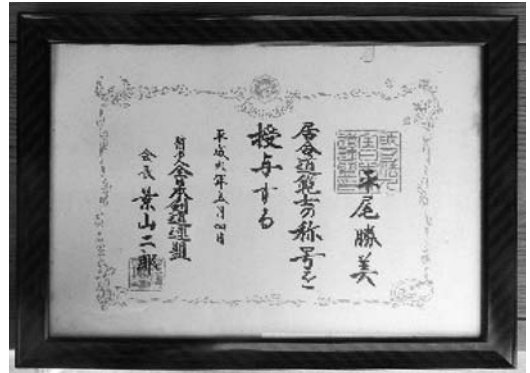 平尾勝美
居合道範士の称号を
授与する
平成年五月四日
財団法人全日本剣道連盟
会長 景山二郎